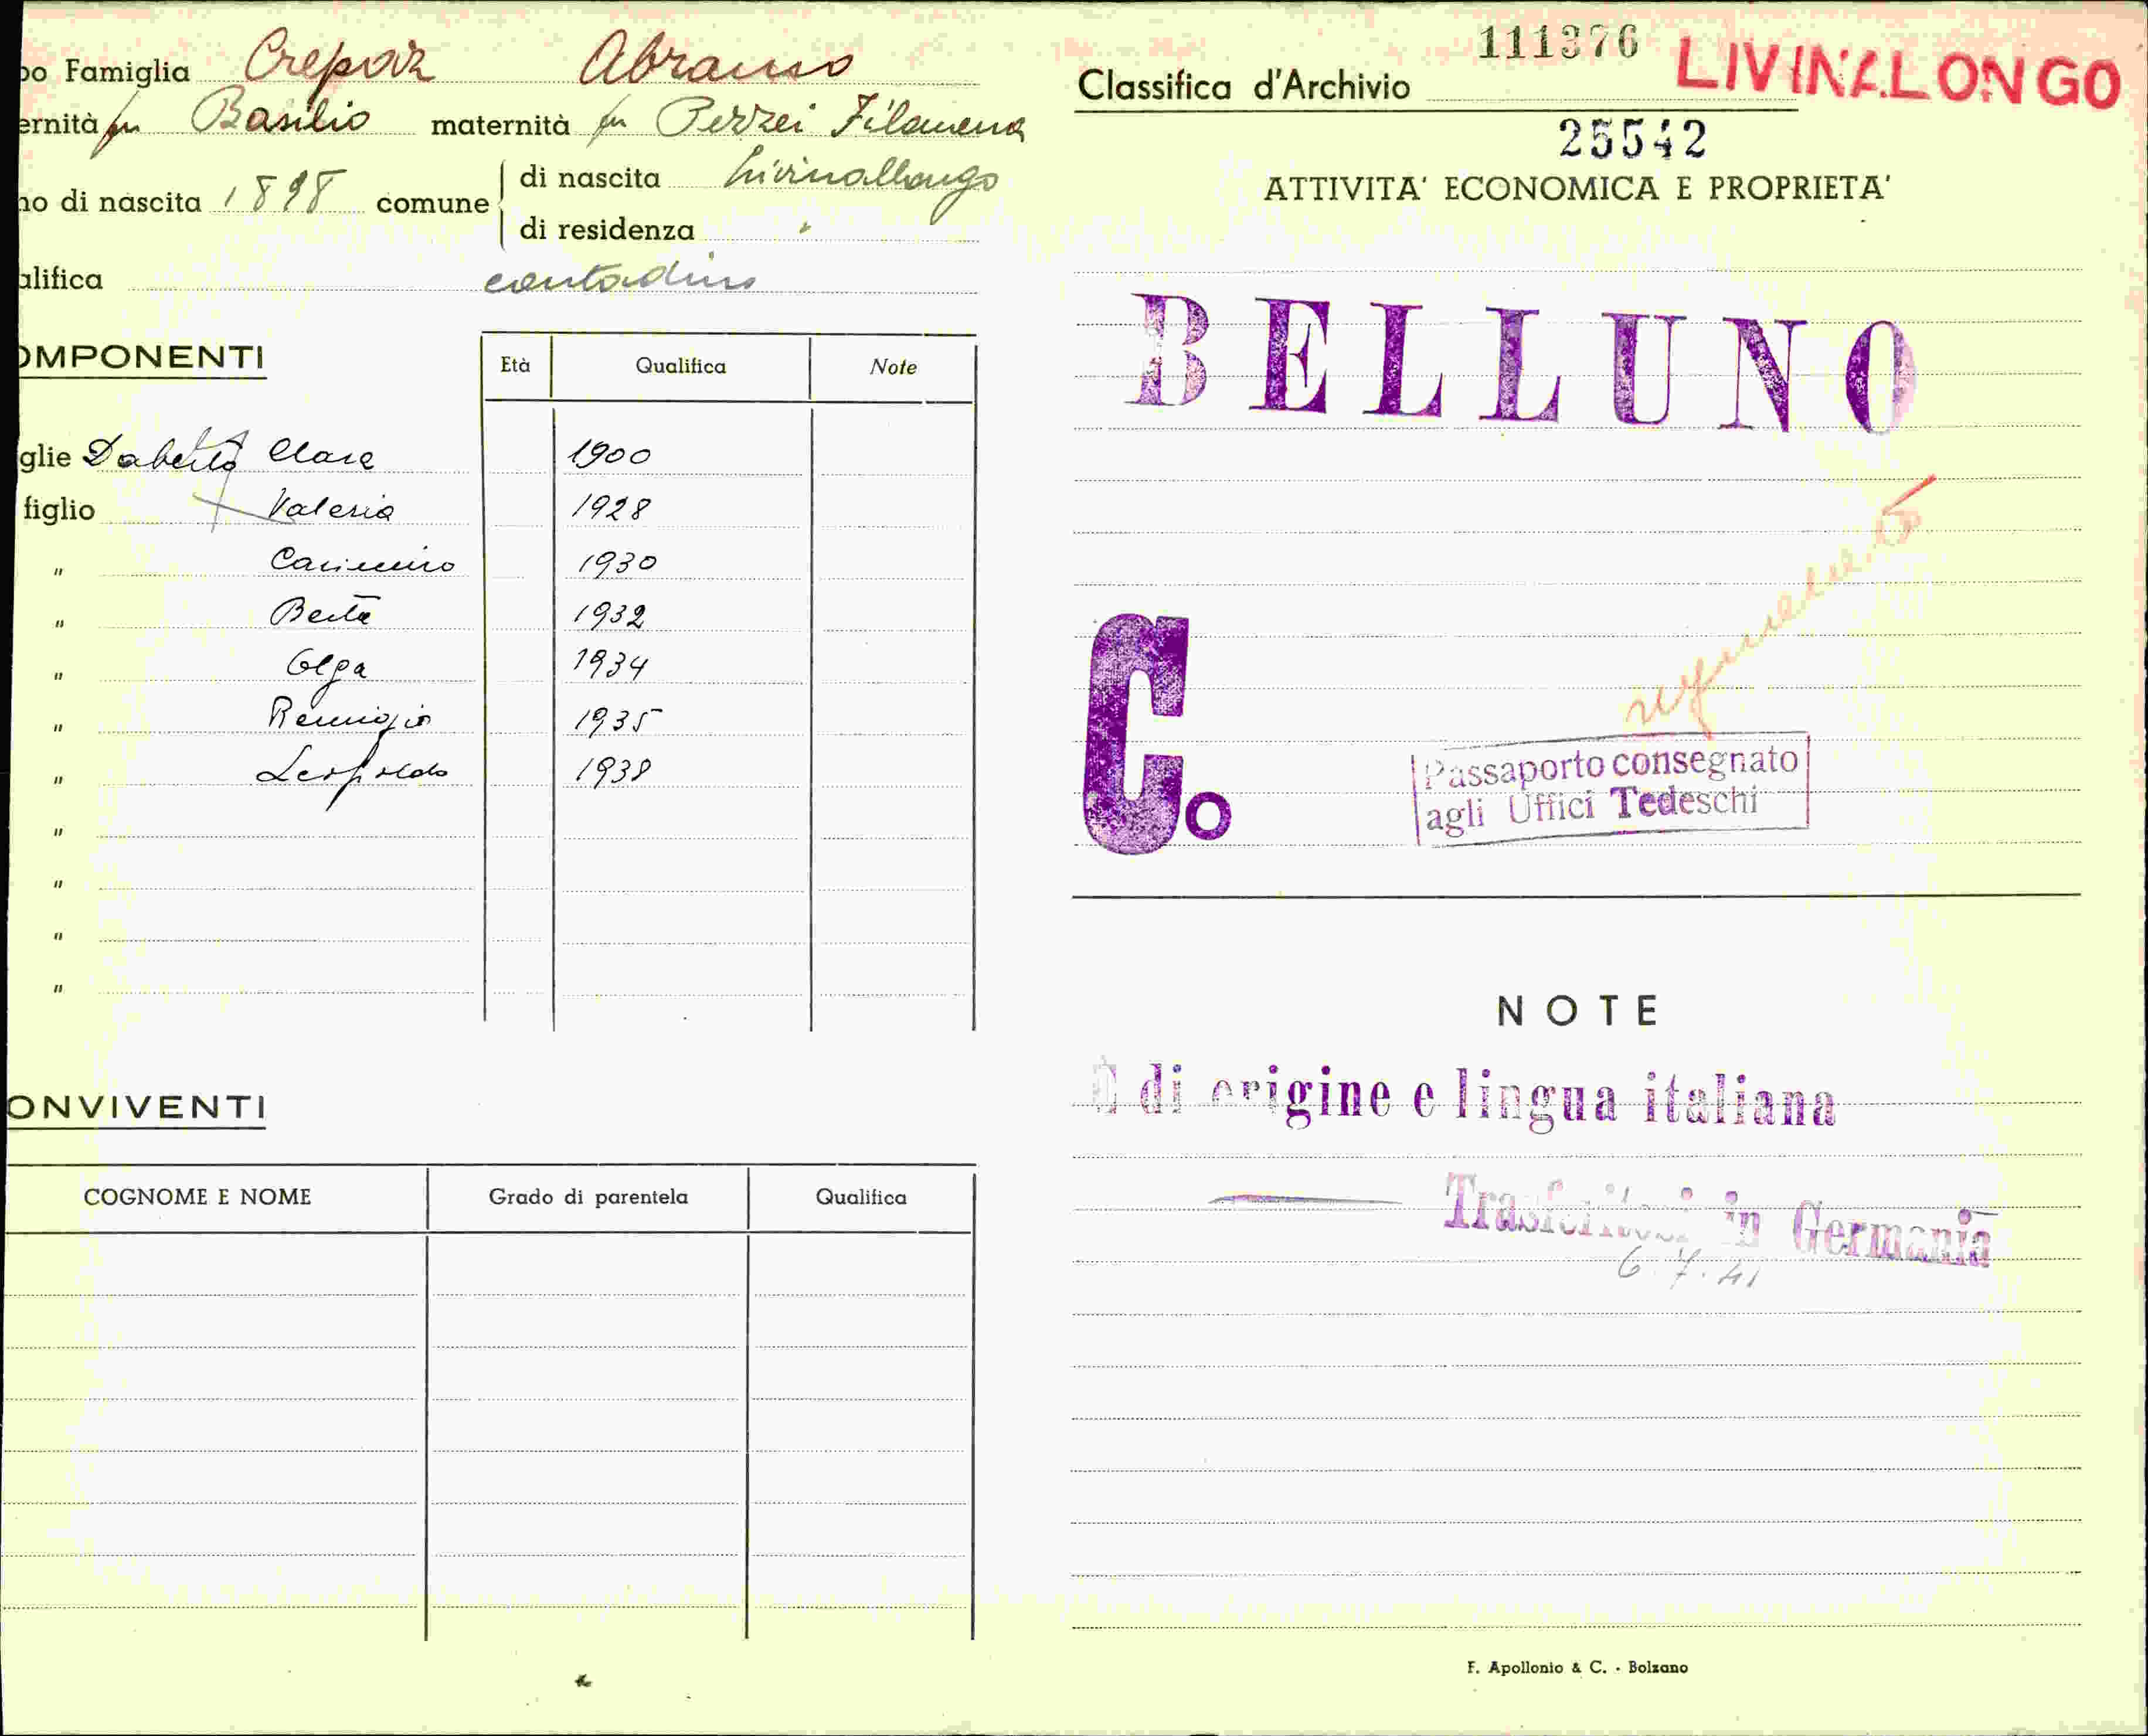 po Famiglia Crepaz Abramo
ernità fu Basilio maternità fu Pezzei Filomena
no di nascita 1898 comune di nascita Livinallongo
di residenza "
alifica contadino
OMPONENTI
Età Qualifica Note
glie Daberto Clara 1900
figlio Valeria 1928
" Casimiro 1930
" Berta 1932
" Olga 1934
" Remigio 1935
" Leopoldo 1938
"
"
"
"
ONVIVENTI
COGNOME E NOME Grado di parentela Qualifica
111376 LIVINALONGO
Classifica d'Archivio
25542
ATTIVITA' ECONOMICA E PROPRIETA'
BELLUNO
C.
Passaporto consegnato
agli Uffici Tedeschi
NOTE
È di origine e lingua italiana
Trasferitosi in Germania
6.7.41
F. Apollonio & C. - Bolzano